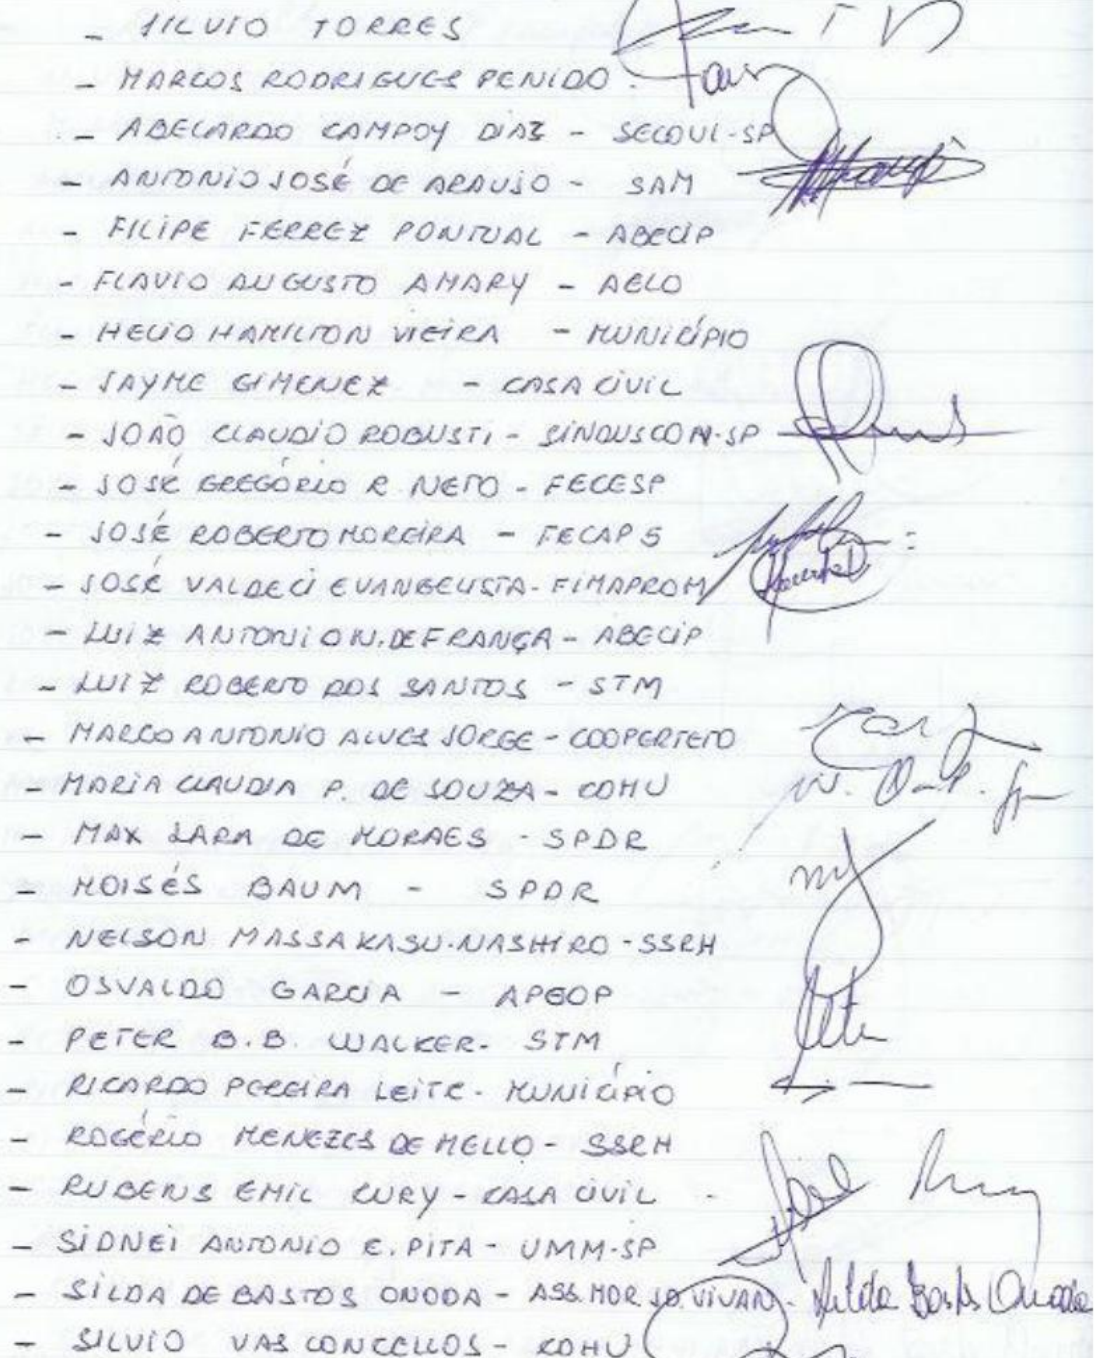 - SILVIO TORRES
- MARCOS RODRIGUES PENIDO.
- ABELARDO CAMPOY DIAZ - SECOVI-SP
- ANTONIO JOSÉ DE ARAUJO - SAM
- FILIPE FERREZ PONTUAL - ABECIP
- FLAVIO AUGUSTO AMARY - AELO
- HELIO HAMILTON VIEIRA - MUNICÍPIO
- JAYME GIMENEZ - CASA CIVIL
- JOÃO CLAUDIO ROBUSTI - SINDUSCON-SP
- JOSÉ GREGÓRIO R. NETO - FECESP
- JOSÉ ROBERTO MOREIRA - FECAPS
- JOSÉ VALDECI EVANGELISTA - FIMAPROM
- LUIZ ANTONIO N. DE FRANÇA - ABECIP
- LUIZ ROBERTO DOS SANTOS - STM
- MARCO ANTONIO ALVES JORGE - COOPERTETO
- MARIA CLAUDIA P. DE SOUZA - COHU
- MAX LARA DE MORAES - SPDR
- MOISÉS BAUM - SPDR
- NELSON MASSAKASU NASHIRO - SSRH
- OSVALDO GARCIA - APEOP
- PETER B.B. WALKER - STM
- RICARDO PEREIRA LEITE - MUNICÍPIO
- ROGÉRIO MENEZES DE MELLO - SSRH
- RUBENS EMIL CURY - CASA CIVIL -
- SIDNEI ANTONIO E. PITA - UMM-SP
- SILDA DE BASTOS ONODA - ASS. MOR. JD. VIVAN - Silda Bastos Onoda
- SILVIO VASCONCELLOS - COHU